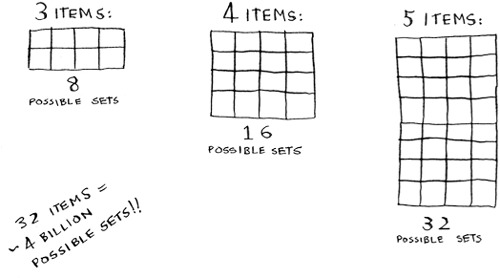 3 ITEMS:
8
POSSIBLE SETS
4 ITEMS:
16
POSSIBLE SETS
5 ITEMS:
32
POSSIBLE SETS
32 ITEMS =
~ 4 BILLION
POSSIBLE SETS!!